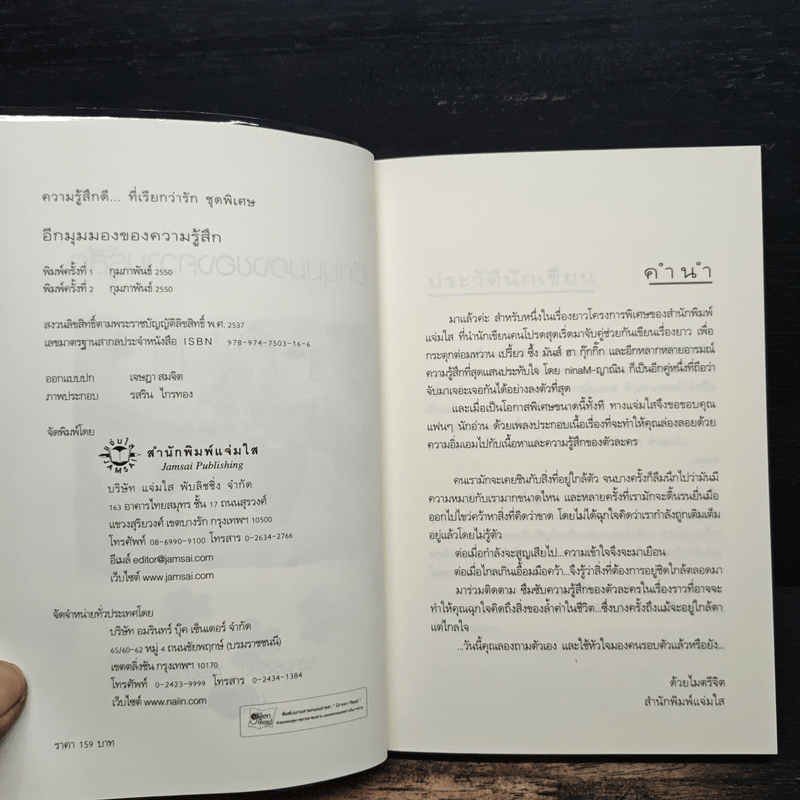 ความรู้สึกดี... ที่เรียกว่ารัก ชุดพิเศษ
อีกมุมมองของความรู้สึก
พิมพ์ครั้งที่ 1 กุมภาพันธ์ 2550
พิมพ์ครั้งที่ 2 กุมภาพันธ์ 2550
สงวนลิขสิทธิ์ตามพระราชบัญญัติลิขสิทธิ์ พ.ศ. 2537
เลขมาตรฐานสากลประจำหนังสือ ISBN 978-974-7503-16-6
ออกแบบปก เจษฎา สมจิต
ภาพประกอบ รสริน ไกรทอง
จัดพิมพ์โดย
สำนักพิมพ์แจ่มใส
Jamsai Publishing
บริษัท แจ่มใส พับลิชชิ่ง จำกัด
163 อาคารไทยสมุทร ชั้น 17 ถนนสุรวงศ์
แขวงสุริยวงศ์ เขตบางรัก กรุงเทพฯ 10500
โทรศัพท์ 08-6990-9100 โทรสาร 0-2634-2766
อีเมล์ editor@jamsai.com
เว็บไซต์ www.jamsai.com
จัดจำหน่ายทั่วประเทศโดย
บริษัท อมรินทร์ บุ๊ค เซ็นเตอร์ จำกัด
65/60-62 หมู่ 4 ถนนชัยพฤกษ์ (บรมราชชนนี)
เขตตลิ่งชัน กรุงเทพฯ 10170
โทรศัพท์ 0-2423-9999 โทรสาร 0-2434-1384
เว็บไซต์ www.naiin.com
ราคา 159 บาท
คำนำ
มาแล้วค่ะ สำหรับหนึ่งในเรื่องยาวโครงการพิเศษของสำนักพิมพ์
แจ่มใส ที่นำนักเขียนคนโปรดสุดเริ่ดมาจับคู่ช่วยกันเขียนเรื่องยาว เพื่อ
กระตุกต่อมหวาน เปรี้ยว ซึ้ง มันส์ ฮา กุ๊กกิ๊ก และอีกหลากหลายอารมณ์
ความรู้สึกที่สุดแสนประทับใจ โดย ninaM-ญาณิน ก็เป็นอีกคู่หนึ่งที่ถือว่า
จับมาเจอะเจอกันได้อย่างลงตัวที่สุด
และเมื่อเป็นโอกาสพิเศษขนาดนี้ทั้งที ทางแจ่มใสจึงขอขอบคุณ
แฟนๆ นักอ่าน ด้วยเพลงประกอบเนื้อเรื่องที่จะทำให้คุณล่องลอยด้วย
ความอิ่มเอมไปกับเนื้อหาและความรู้สึกของตัวละคร
คนเรามักจะเคยชินกับสิ่งที่อยู่ใกล้ตัว จนบางครั้งก็ลืมนึกไปว่ามันมี
ความหมายกับเรามากขนาดไหน และหลายครั้งที่เรามักจะดิ้นรนยื่นมือ
ออกไปไขว่คว้าหาสิ่งที่คิดว่าขาด โดยไม่ได้ฉุกใจคิดว่าเรากำลังถูกเติมเต็ม
อยู่แล้วโดยไม่รู้ตัว
ต่อเมื่อกำลังจะสูญเสียไป...ความเข้าใจจึงจะมาเยือน
ต่อเมื่อไกลเกินเอื้อมมือคว้า...จึงรู้ว่าสิ่งที่ต้องการอยู่ชิดใกล้ตลอดมา
มาร่วมติดตาม ซึมซับความรู้สึกของตัวละครในเรื่องราวที่อาจจะ
ทำให้คุณฉุกใจคิดถึงสิ่งของล้ำค่าในชีวิต...ซึ่งบางครั้งถึงแม้จะอยู่ใกล้ตา
แต่ไกลใจ
...วันนี้คุณลองถามตัวเอง และใช้หัวใจมองคนรอบตัวแล้วหรือยัง...
ด้วยไมตรีจิต
สำนักพิมพ์แจ่มใส